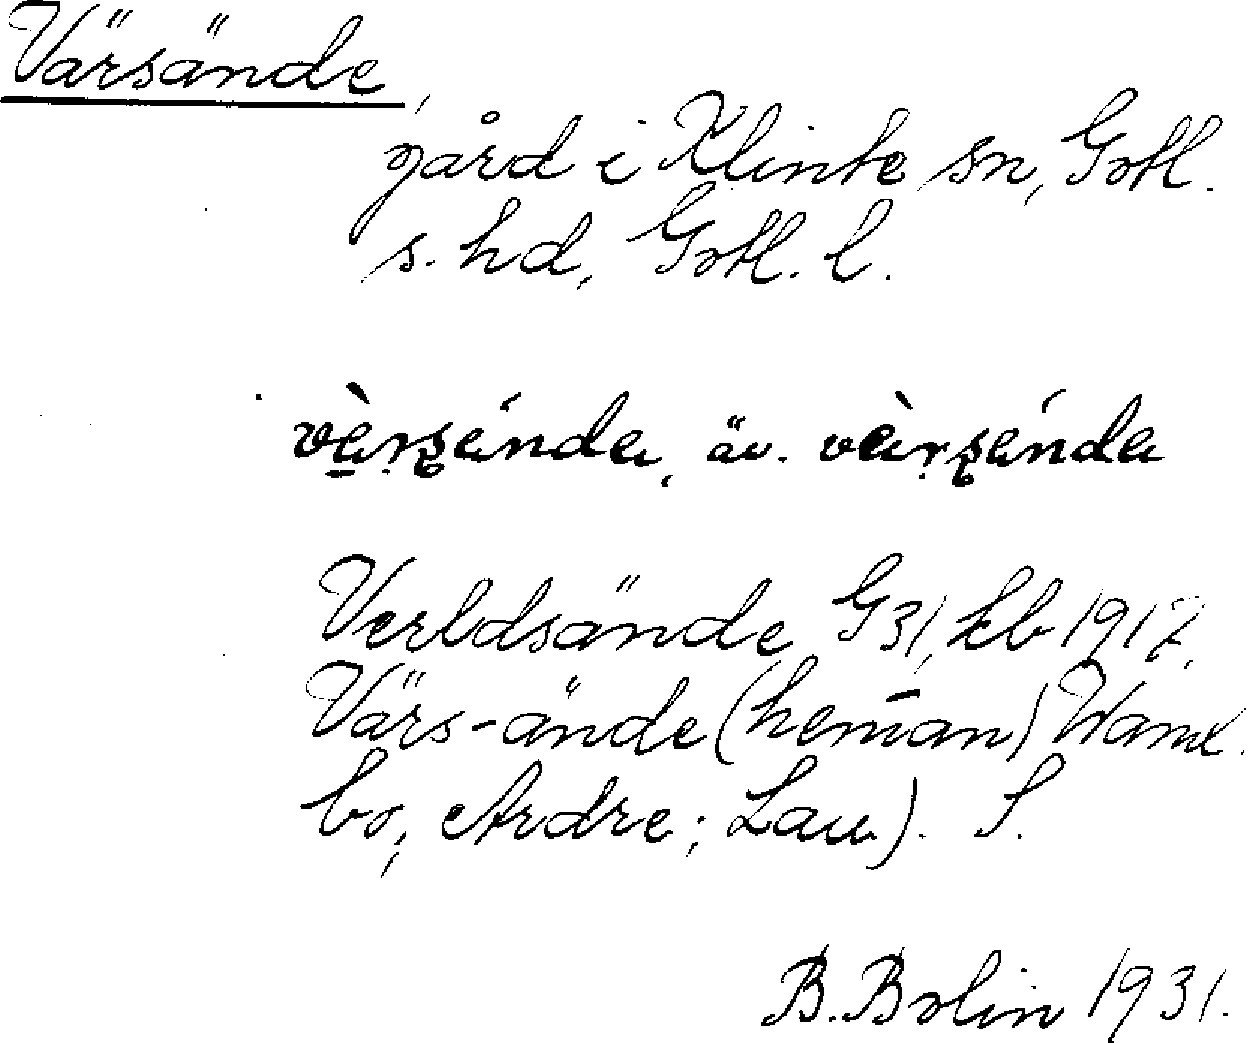 Värsände,
gård i Klinte sn, Gotl.
s. hd, Gotl. l.
värsända, äv. värsända
Verldsände G31, kb 1917,
Värs-ände (heman) Waml.
bo, Ardre; Lau). S.
B. Bolin 1931.